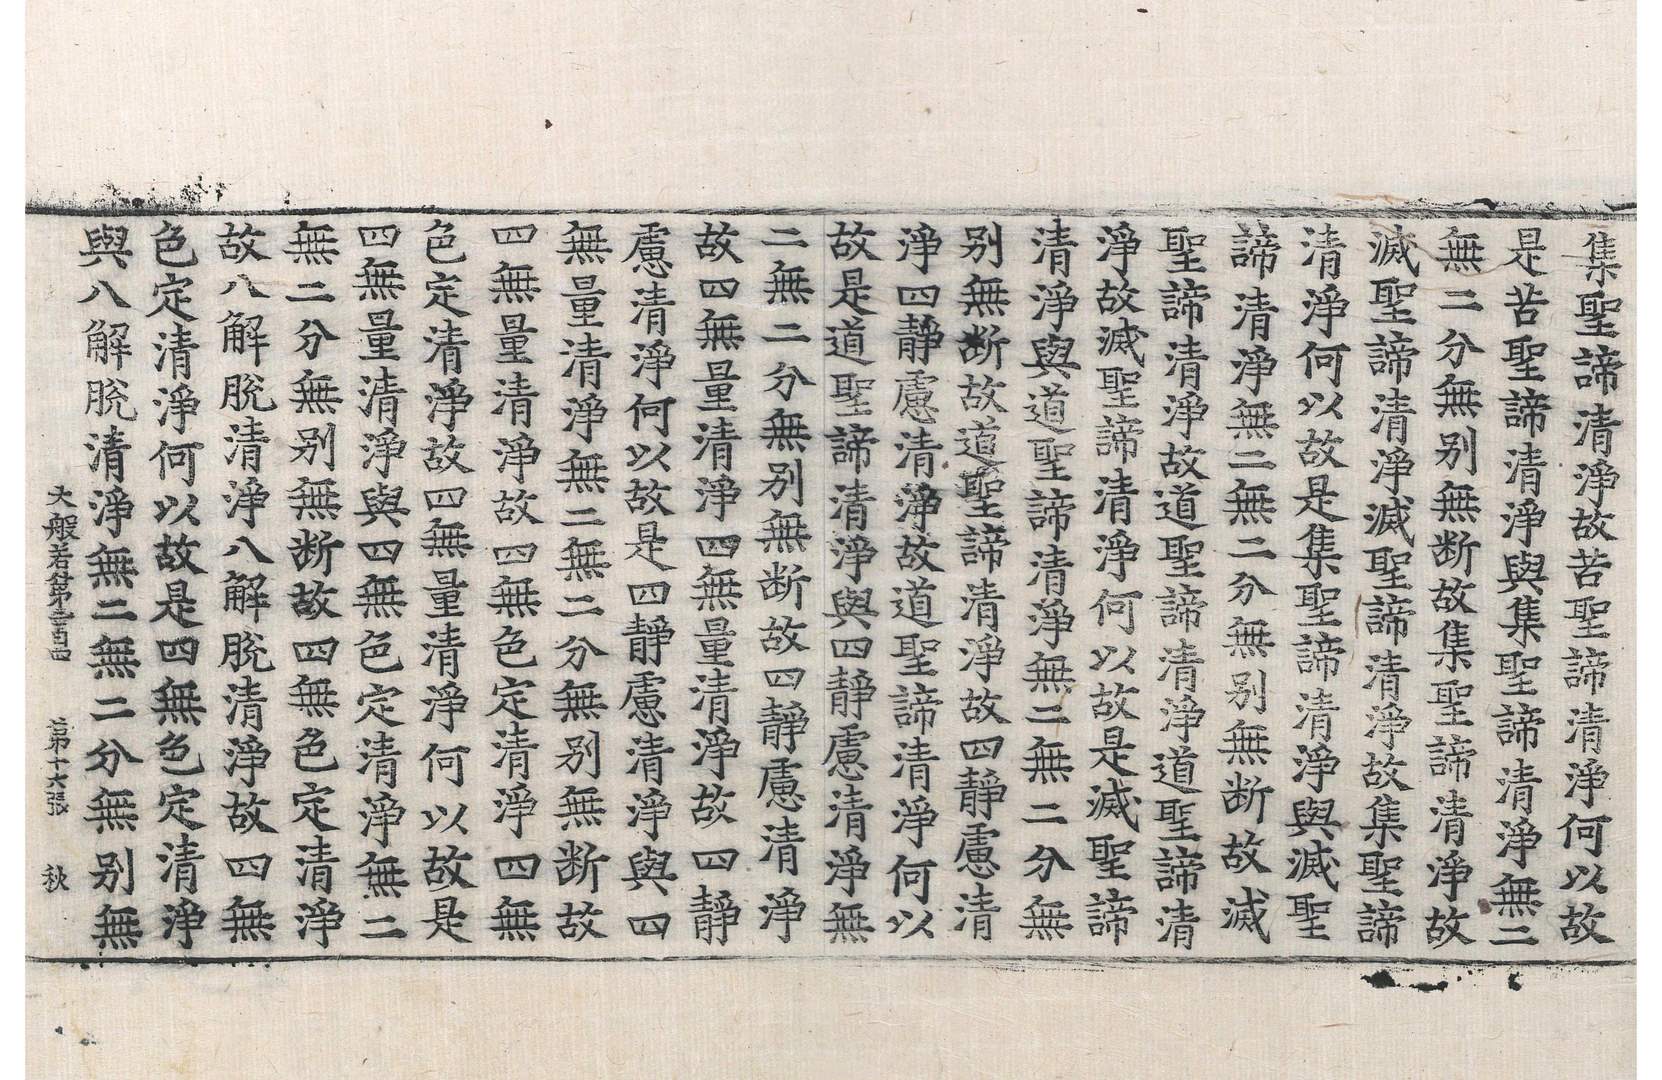 集聖諦清淨故苦聖諦清淨何以故
是苦聖諦清淨與集聖諦清淨無二
無二分無别無断故集聖諦清淨故
滅聖諦清淨滅聖諦清淨故集聖諦
清淨何以故是集聖諦清淨與滅聖
諦清淨無二無二分無别無断故滅
聖諦清淨故道聖諦清淨道聖諦清
淨故滅聖諦清淨何以故是滅聖諦
清淨與道聖諦清淨無二無二分無
别無断故道聖諦清淨故四靜慮清
淨四靜慮清淨故道聖諦清淨何以
故是道聖諦清淨與四靜慮清淨無
二無二分無别無断故四靜慮清淨
故四無量清淨四無量清淨故四靜
慮清淨何以故是四靜慮清淨與四
無量清淨無二無二分無别無断故
四無量清淨故四無色定清淨四無
色定清淨故四無量清淨何以故是
四無量清淨與四無色定清淨無二
無二分無别無断故四無色定清淨
故八解脫清淨八解脫清淨故四無
色定清淨何以故是四無色定清淨
與八解脫清淨無二無二分無别無
大般若第二百四 第十六張 秋